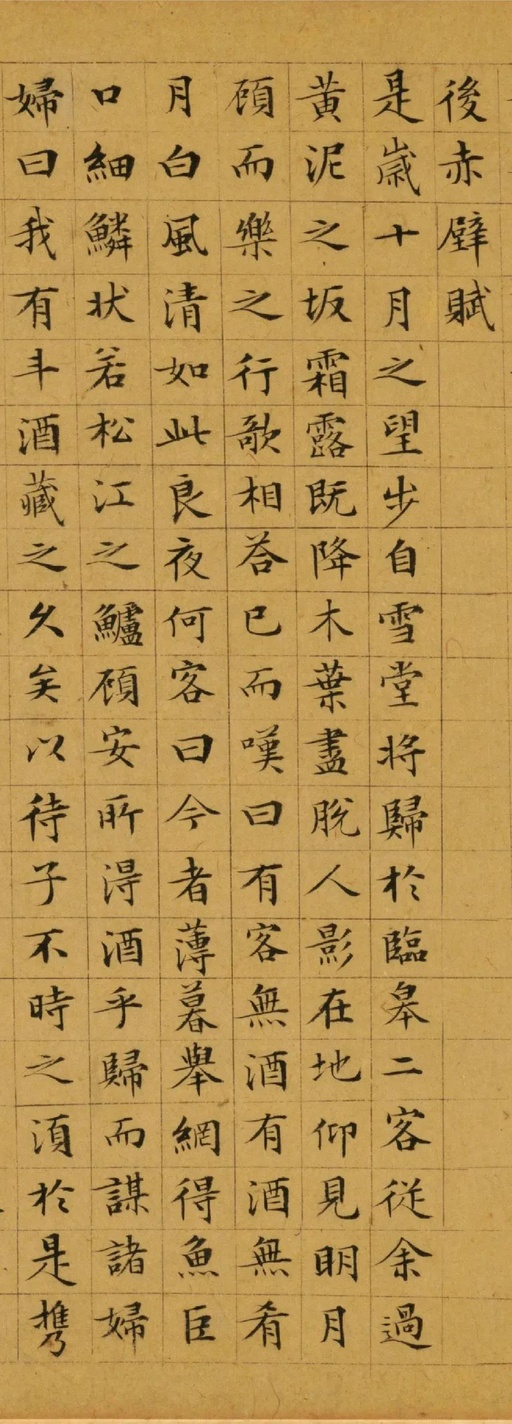 後赤壁賦
是歲十月之望步自雪堂將歸於臨皋二客從余過
黃泥之坂霜露既降木葉盡脫人影在地仰見明月
顧而樂之行歌相荅已而嘆曰有客無酒有酒無肴
月白風清如此良夜何客曰今者薄暮舉網得魚巨
口細鱗狀若松江之鱸顧安所得酒乎歸而謀諸婦
婦曰我有斗酒藏之久矣以待子不時之須於是携